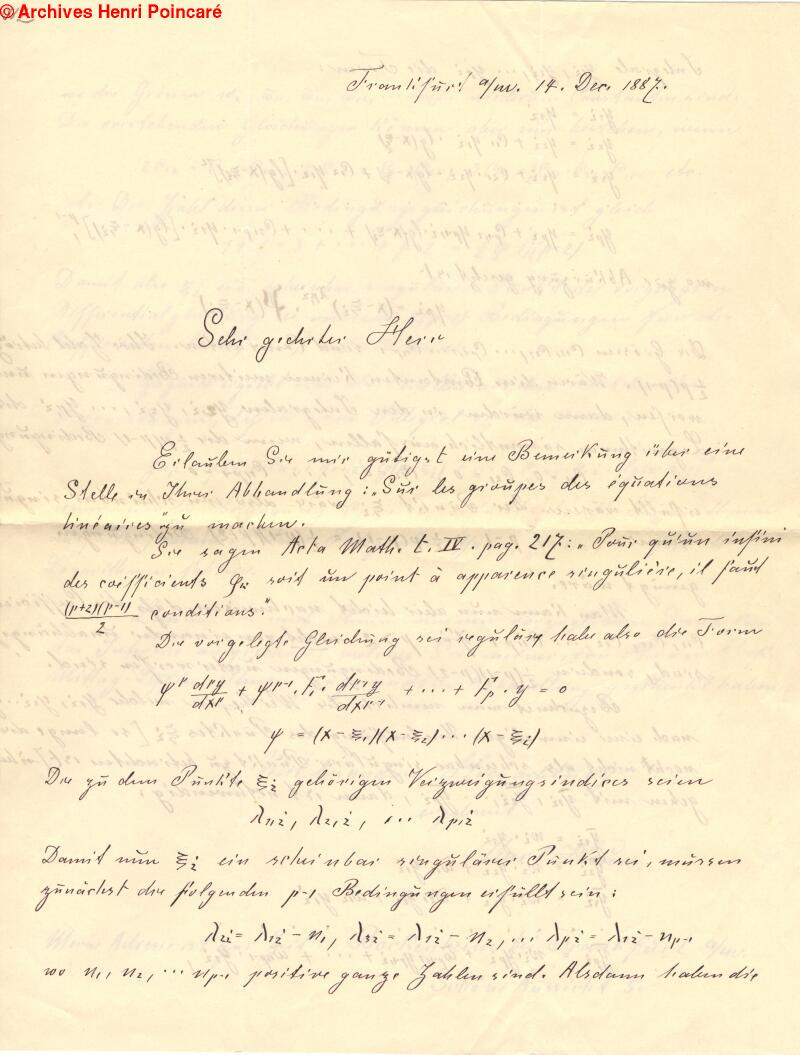 © Archives Henri Poincaré
Frankfurt a/m. 14. Dec. 1887.
Sehr geehrter Herr
Erlauben Sie mir gütigst eine Bemerkung über eine
Stelle in Ihrer Abhandlung: „Sur les groupes des équations
linéaires" zu machen.
Sie sagen Acta Math. t. IV. pag. 217: „Pour qu'un infini
des coëfficients φₖ soit un point à apparence singulière, il faut
(p+2)(p-1)/2 conditions".
Die vorgelegte Gleichung sei regulär, habe also die Form
ψᵖ dᵖy/dxᵖ + ψᵖ⁻¹. F₁. dᵖ⁻¹y/dxᵖ⁻¹ + ... + Fₚ. y = 0
ψ = (x-ξ₁)(x-ξ₂)...(x-ξᵢ)
Die zu dem Punkte ξᵢ gehörigen Verzweigungsindices seien
λ₁ᵢ, λ₂ᵢ, ... λₚᵢ
Damit nun ξᵢ ein scheinbar singulärer Punkt sei, müssen
zunächst die folgenden p-1 Bedingungen erfüllt sein:
λ₂ᵢ = λ₁ᵢ - n₁, λ₃ᵢ = λ₁ᵢ - n₂, ... λₚᵢ = λ₁ᵢ - nₚ₋₁
wo n₁, n₂, ... nₚ₋₁ positive ganze Zahlen sind. Alsdann haben die